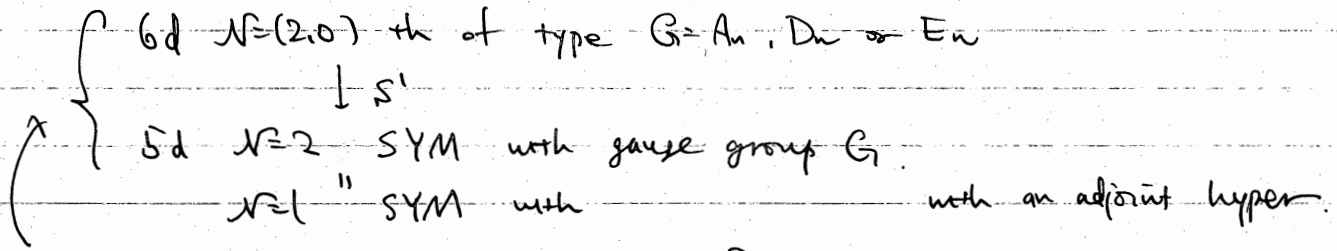 6d N=(2,0) th of type G=An, Dn or En
↓ S¹
5d N=2 SYM with gauge group G.
N=1 " SYM with with an adjoint hyper.